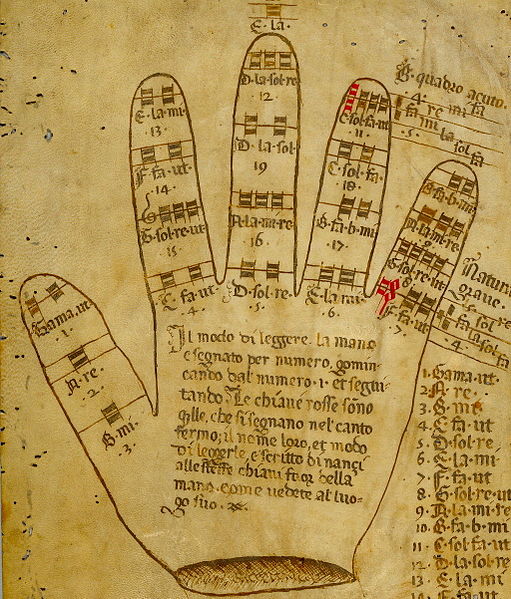 E. la.
D. la. sol. re
12
E. la. mi
13.
D. la. sol.
19
C. sol. fa. ut
11
F. fa. ut
14.
C. sol. fa.
18.
G. sol. re. ut
15
A. la. mi. re
16.
B. fa. b. mi
17.
C. fa. ut
4.
D. sol. re.
5.
E. la. mi.
6.
B. quadro acuto.
4. re mi fa
fa mi la sol fa
5.
B. fa. b. mi
A. la. mi. re.
9.
G. sol. re. ut
8
F. fa. ut
7.
Natura
Grave.
fa sol re
fa la sol fa
4.
Gama. ut
1.
A. re
2.
B. mi.
3.
Il modo di leggere. la mano
e segnato per numero, comin-
cando dal numero. 1. et segui-
tando. Le chiave rosse sono
qlle, che si segnano nel canto
fermo; il nome loro, et modo
di leggerle, e scritto di nanci
alle stesse chiavi foor della
mano. come vedete al luo-
go suo.
1. Gama. ut
2. A. re
3. B. mi
4. C. fa. ut
5. D. sol. re
6. E. la. mi
7. F. fa. ut
8. G. sol. re. ut
9. A. la. mi. re
10. B. fa. b. mi
11. C. sol. fa. ut
12. D. la. sol. re
13. E. la. mi
14. F. fa. ut